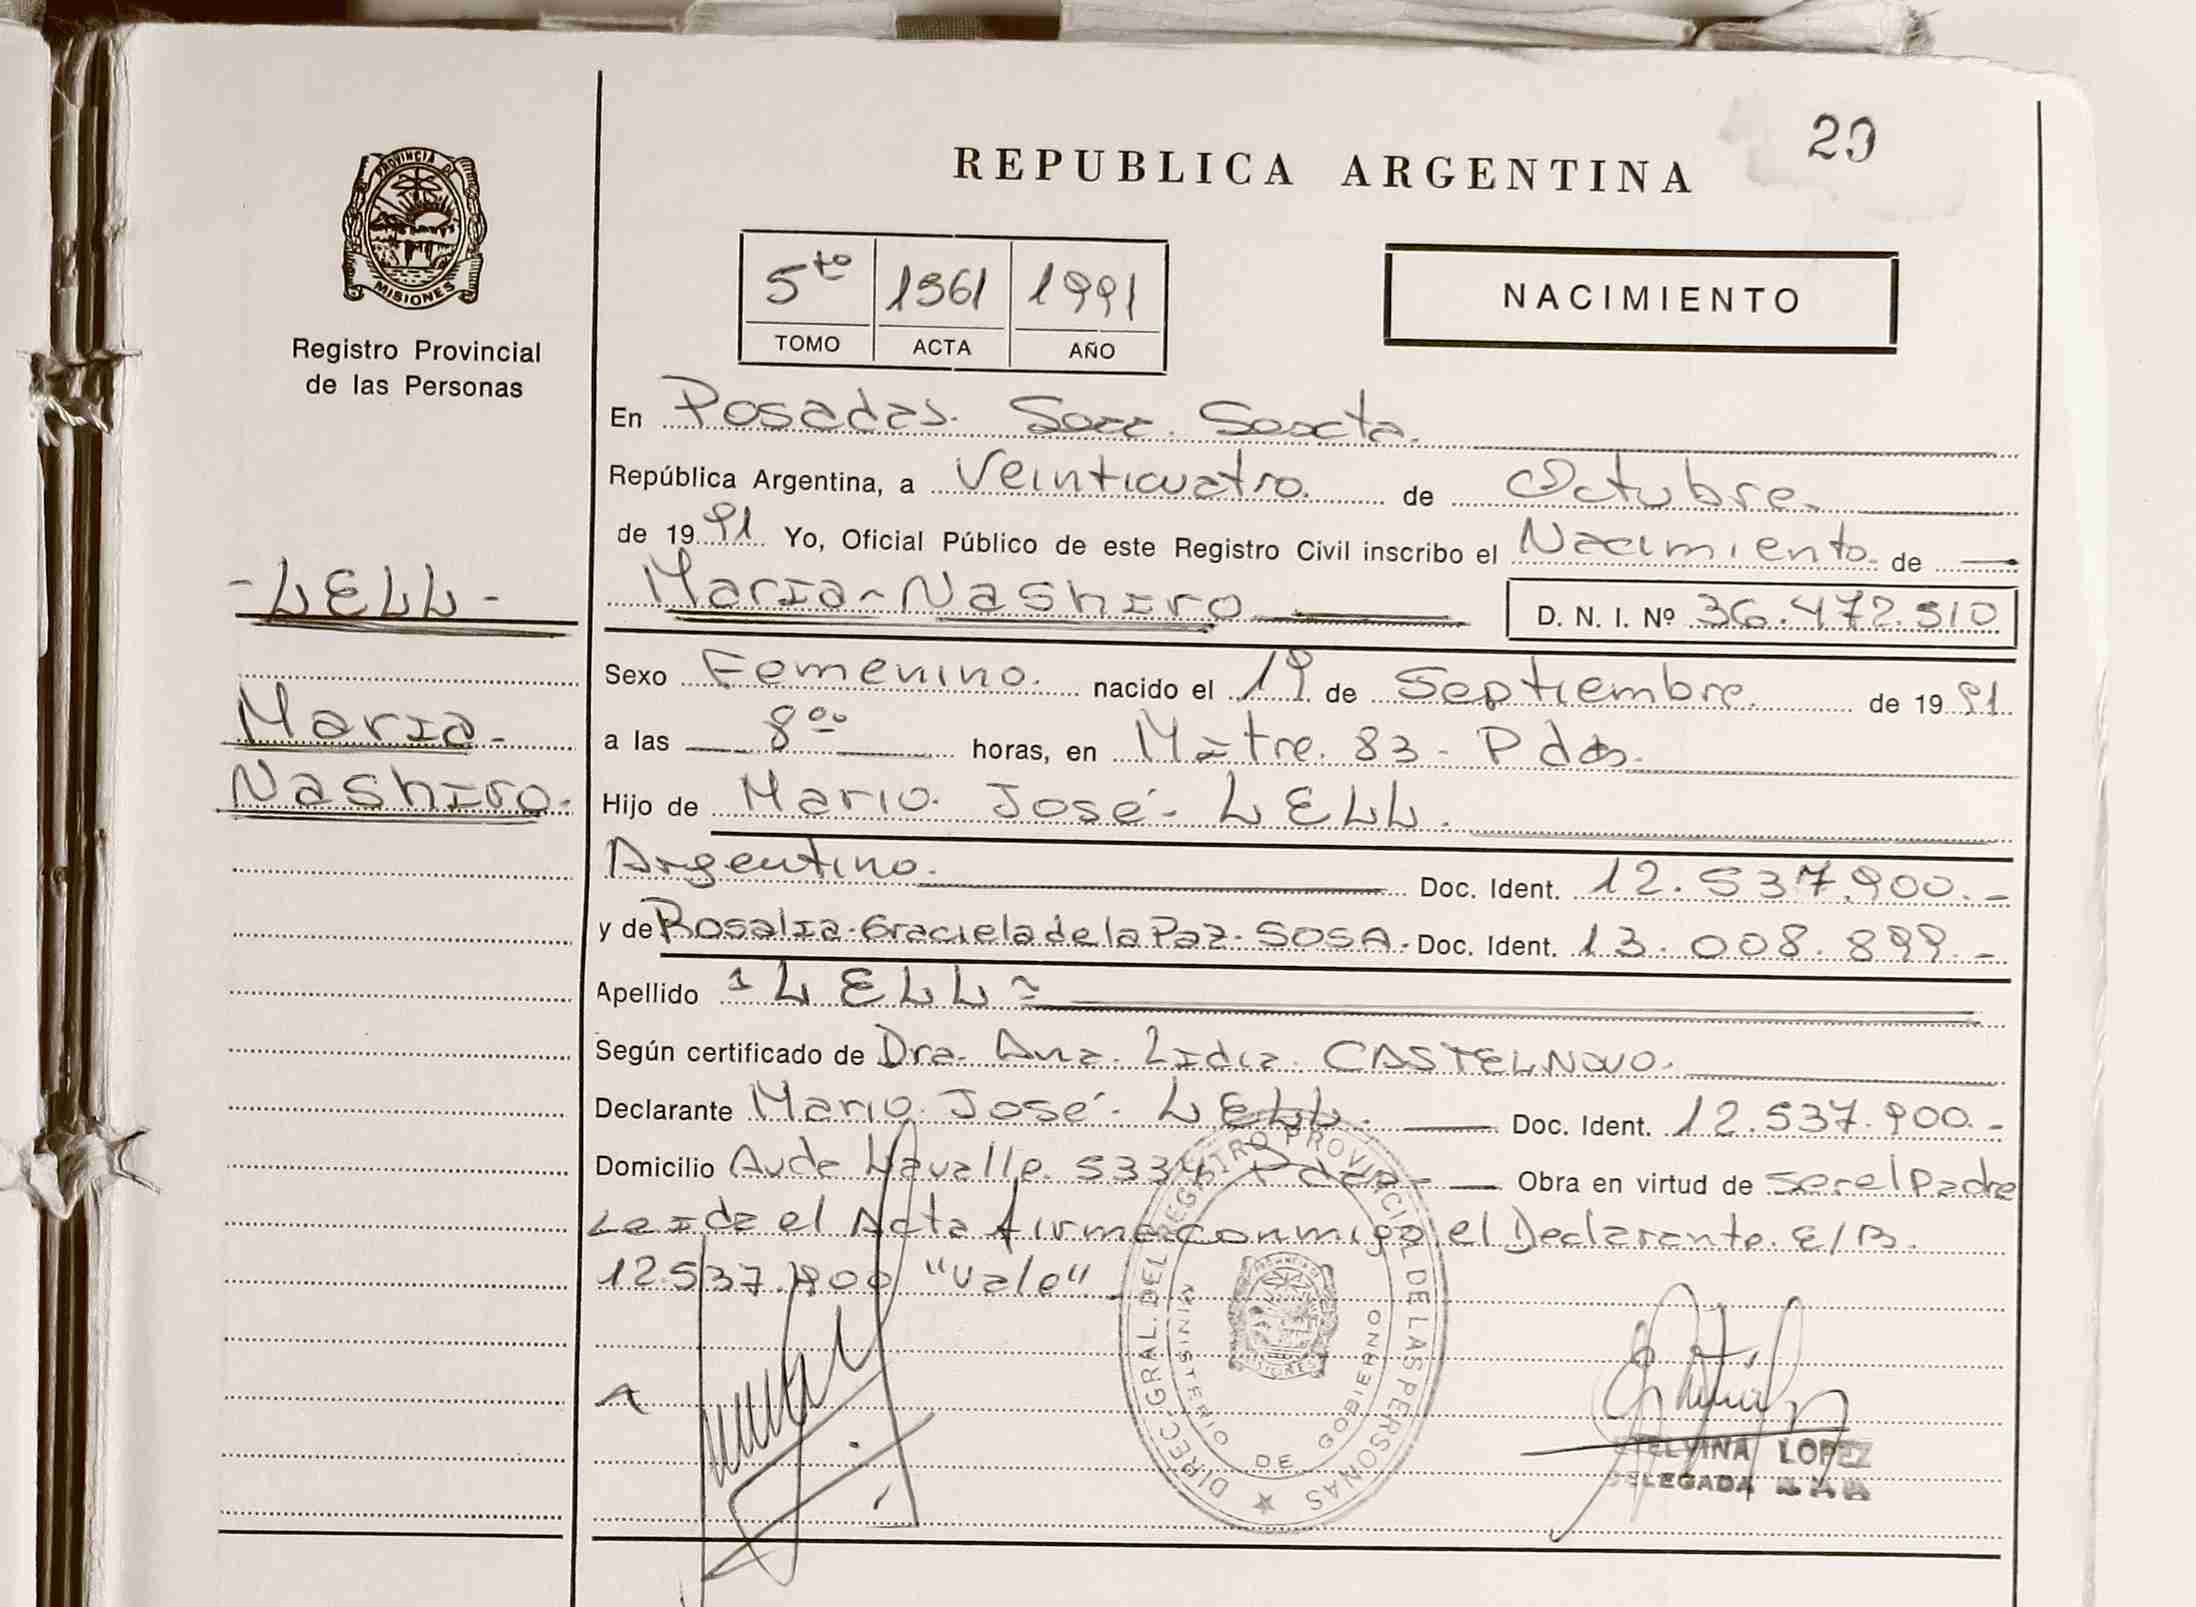 29
REPUBLICA ARGENTINA
PROVINCIA D
MISIONES
Registro Provincial
de las Personas
5to 1361 1991
TOMO ACTA AÑO
NACIMIENTO
En Posadas. Secc. Sexta.
República Argentina, a Veinticuatro. de Octubre.
de 1991 Yo, Oficial Público de este Registro Civil inscribo el Nacimiento. de
-LELL-
Maria-Nashiro D. N. I. Nº 36.472.510
Sexo Femenino. nacido el 19 de Septiembre. de 1991
Maria-
a las 8oo horas, en Mitre. 83- Pdas.
Nashiro.
Hijo de Mario. José- LELL.
Argentino. Doc. Ident. 12.537.900.-
y de Rosalia-Graciela de la Paz- SOSA- Doc. Ident. 13.008.899.-
Apellido LELL
Según certificado de Dra. Ana. Lidia. CASTELNOVO.
Declarante Mario. José- LELL. Doc. Ident. 12.537.900.-
Domicilio Avda Lavalle. 5334 Pdas- Obra en virtud de ser el Padre
Leida el Acta firma conmigo el Declarante. E/B.
12.537.900 "Vale"
DIREC. GRAL. DEL REGISTRO PROVINCIAL DE LAS PERSONAS
MINISTERIO DE GOBIERNO
ETELVINA LOPEZ
DELEGADA